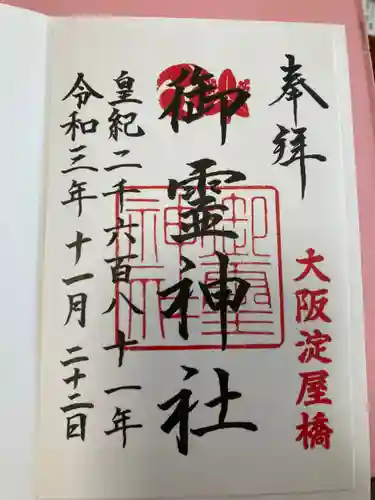 奉拝
大阪淀屋橋
御霊神社
皇紀二千六百八十一年
令和三年十一月二十二日